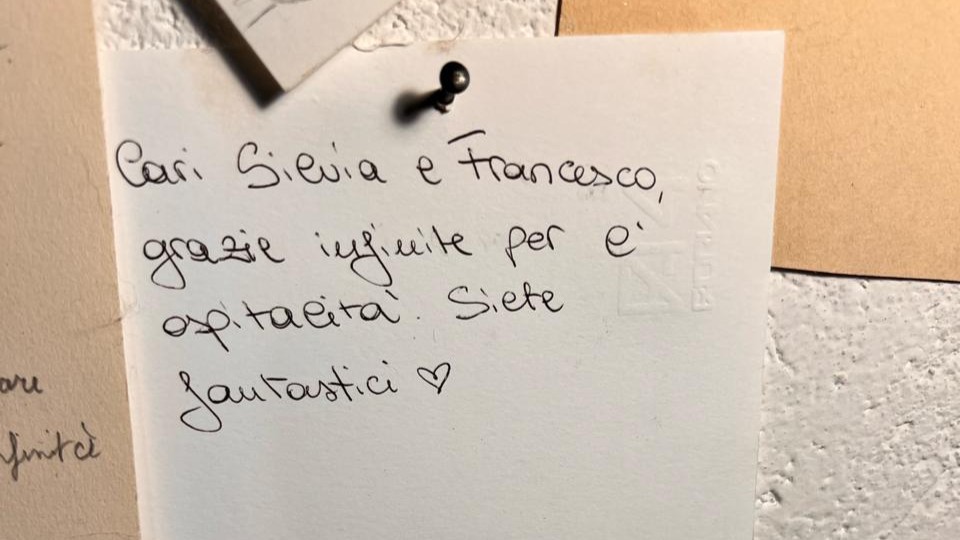 Cari Silvia e Francesco,
grazie infinite per l'
ospitalità. Siete
fantastici ♡
are